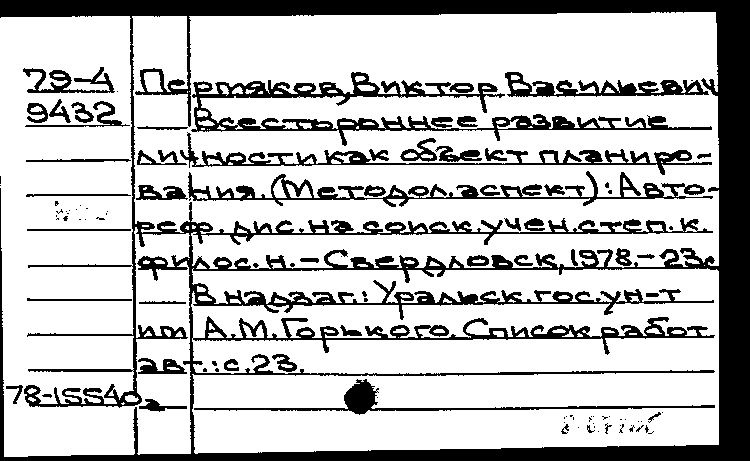 79-4 Пермяков, Виктор Васильевич
9432 Всестороннее развитие
личности как объект планиро-
вания. (Методол. аспект): Авто-
реф. дис. на соиск. учен. степ. к.
филос. н. - Свердловск, 1978. - 23с
В надзаг.: Уральск. гос. ун-т
им А.М. Горького. Список работ
авт.: с. 23.
78-15540а